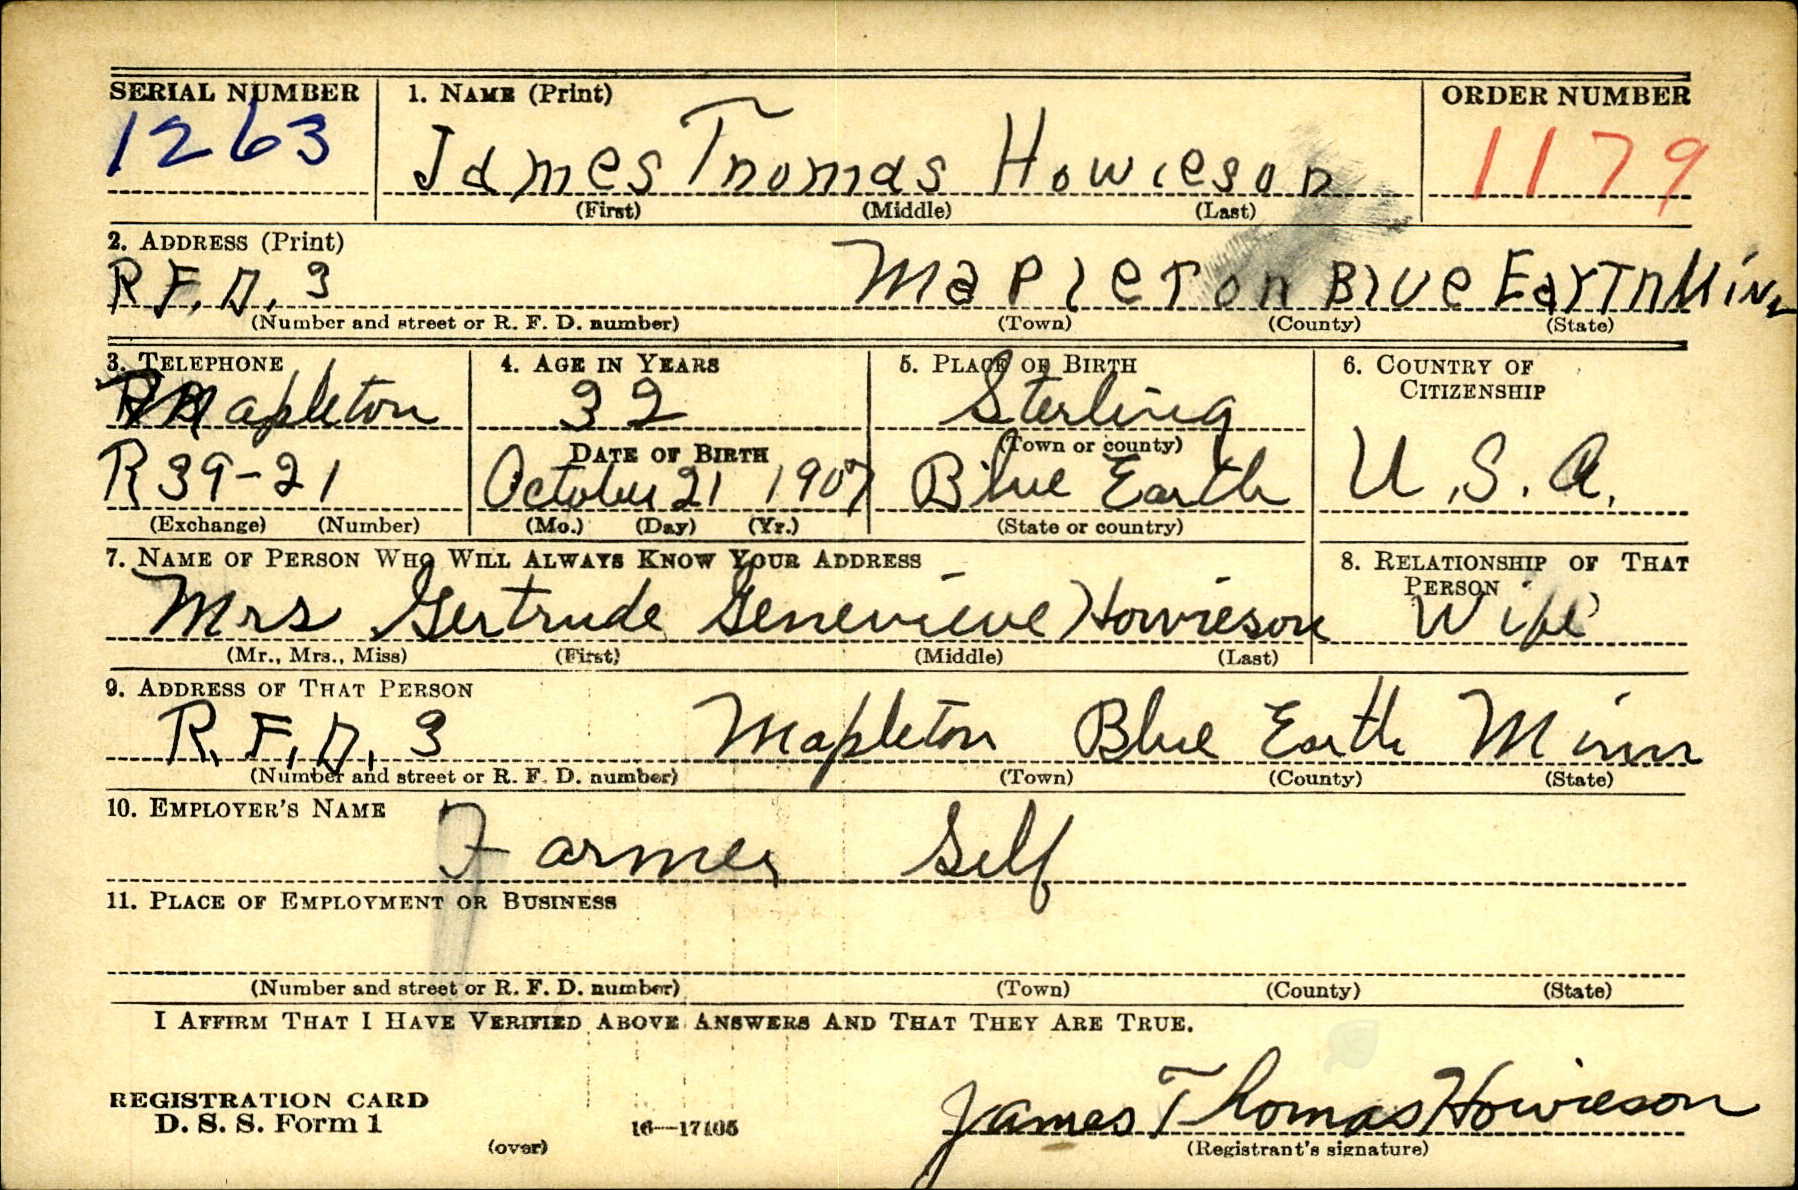 SERIAL NUMBER 1. NAME (Print) ORDER NUMBER
1263 James Thomas Howieson 1179
(First) (Middle) (Last)
2. ADDRESS (Print)
R F. D. 3 Mapleton Blue Earth Minn
(Number and street or R. F. D. number) (Town) (County) (State)
3. TELEPHONE 4. AGE IN YEARS 5. PLACE OF BIRTH 6. COUNTRY OF CITIZENSHIP
Mapleton 32 Sterling
DATE OF BIRTH (Town or county)
R 39-21 October 21 1907 Blue Earth U.S.A.
(Exchange) (Number) (Mo.) (Day) (Yr.) (State or country)
7. NAME OF PERSON WHO WILL ALWAYS KNOW YOUR ADDRESS 8. RELATIONSHIP OF THAT PERSON
Mrs Gertrude Genevieve Howieson Wife
(Mr., Mrs., Miss) (First) (Middle) (Last)
9. ADDRESS OF THAT PERSON
R. F. D. 3 Mapleton Blue Earth Minn
(Number and street or R. F. D. number) (Town) (County) (State)
10. EMPLOYER'S NAME
Farmer Self
11. PLACE OF EMPLOYMENT OR BUSINESS
(Number and street or R. F. D. number) (Town) (County) (State)
I AFFIRM THAT I HAVE VERIFIED ABOVE ANSWERS AND THAT THEY ARE TRUE.
REGISTRATION CARD
D. S. S. Form 1 16—17105 James Thomas Howieson
(over) (Registrant's signature)